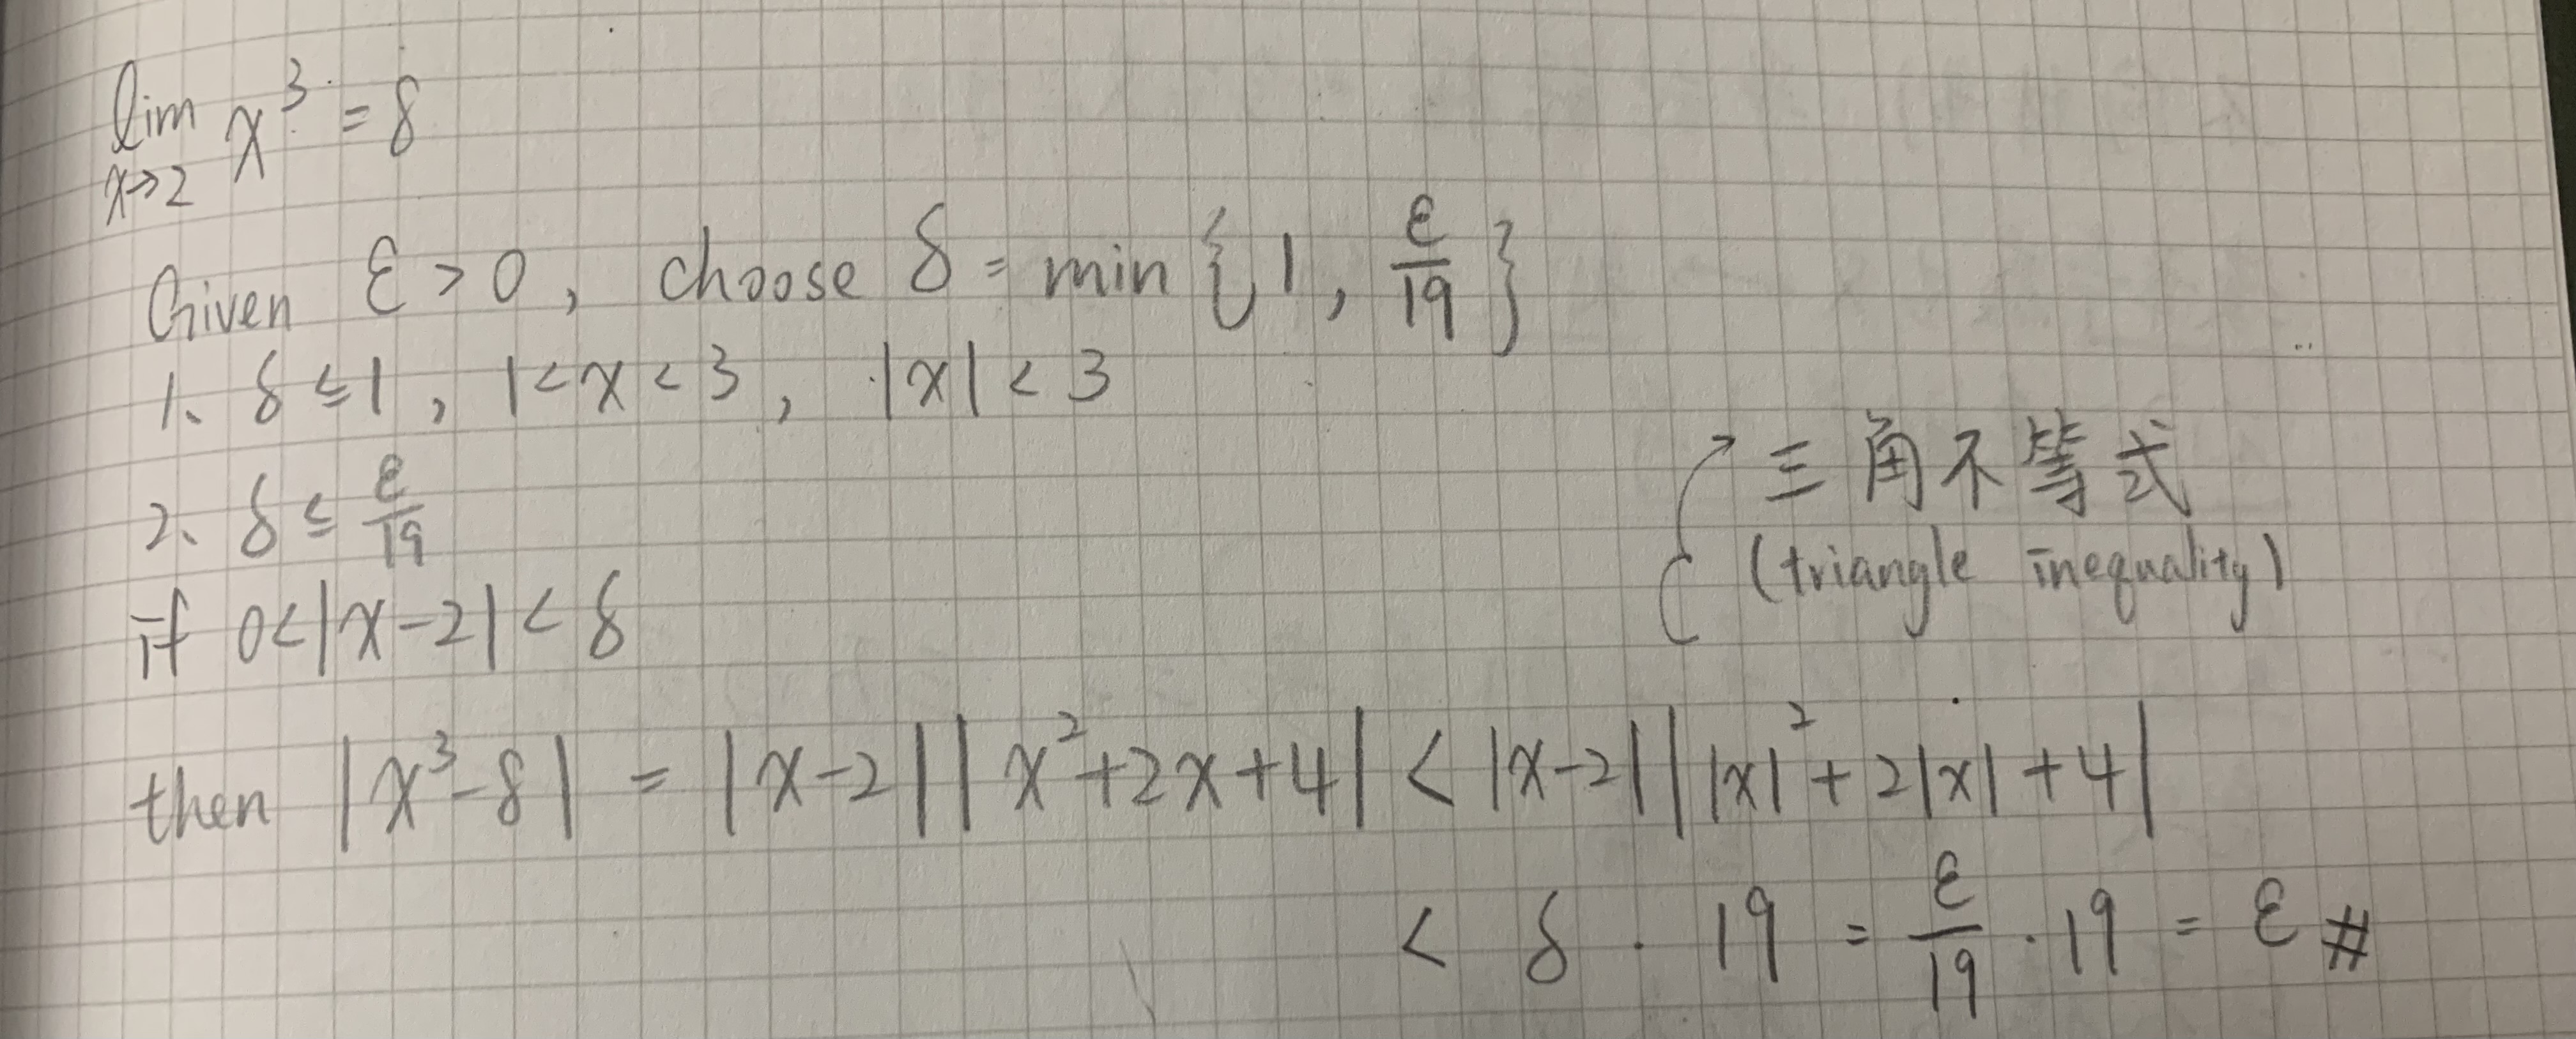 lim x³ = 8
x→2
Given ε > 0, choose δ = min { 1, ε/19 }
1、 δ ≤ 1, 1 < x < 3, |x| < 3
2、 δ ≤ ε/19
三角不等式
(triangle inequality)
if 0 < |x-2| < δ
then |x³-8| = |x-2||x²+2x+4| < |x-2|||x|²+2|x|+4|
< δ · 19 = ε/19 · 19 = ε #